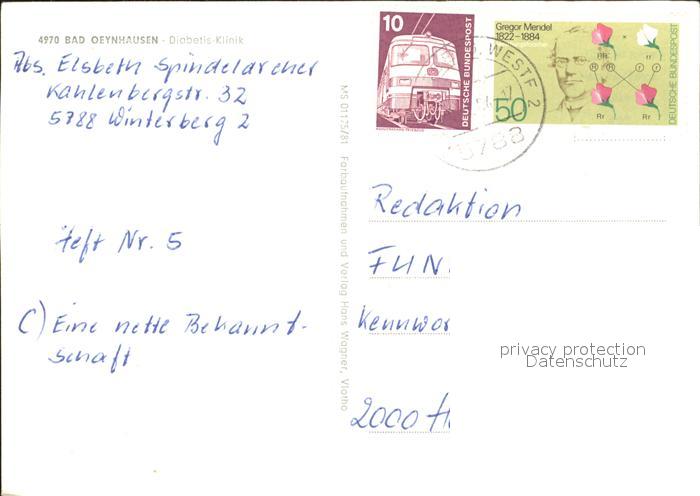 4970 BAD OEYNHAUSEN - Diabetis-Klinik
Abs. Elsbeth Spindelarcher
Kahlenbergstr. 32
5788 Winterberg 2
Heft Nr. 5
C) Eine nette Bekannt-
schaft
MS 01175/81 Farbaufnahmen und Verlag Hans Wagner, Vlotho
10
DEUTSCHE BUNDESPOST
Gregor Mendel
1822-1884
50
DEUTSCHE BUNDESPOST
RR
rr
R R r r
Rr
Rr
WESTF 2
5788
Redaktion
FUN
Kennwor
2000 H
privacy protection
Datenschutz